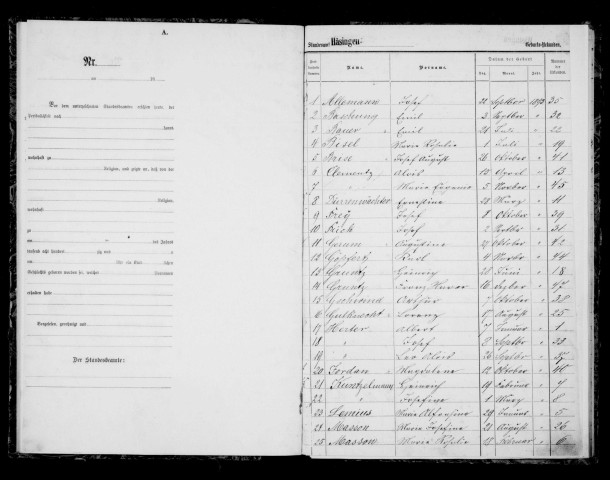 A.
Nr.
Vor dem unterzeichneten Standesbeamten erschien heute, der
Persönlichkeit nach
kannt,
wohnhaft zu
Religion, und zeigte an, daß von der
Religion,
wohnhaft
zu
am des Jahres
tausend acht hundert
um Uhr ein Kind
Geschlechts geboren worden sei, welches Vornamen
erhalten habe
Vorgelesen, genehmigt und
Der Standesbeamte:
Standesamt Häsingen Geburts-Urkunden.
Name. Vorname. Datum der Geburt Nummer der Urkunden.
Tag. Monat. Jahr.
1 Allemann Josef 21 Septber 1873 35
2 Baschung Emil 3 Septber " 32
3 Bauer Emil 21 Juli " 22
4 Bisel Marie Rosalie 1 Juli " 19
5 Josef August 26 Oktober " 41
6 Clementz Alois 12 April " 13
7 " Maria Eugenie 5 Novber " 45
8 Dürrenwächter Ernestine 28 März " 11
9 Frey Josef 8 Oktober " 39
10 Frick Josef 2 Septbr " 31
11 Augustine 27 Oktober " 42
12 Göpfert Karl 4 Novbr " 44
13 18 Juni " 18
14 Franz Xaver 16 Dezber " 47
15 Gschwind Arthur 7 Oktober " 38
16 Gutknecht Lorenz 17 August " 25
17 Herter Albert 7 Januar " 1
18 " Josef Septbr " 33
19 " Leo Alois 26 Septbr " 37
20 Jordan Magdalena 12 Oktober " 40
21 Kuntzelmann Heinrich 19 Februar " 7
22 " Josefine 1 März " 8
23 Marie Alfonsine 29 Januar " 5
24 Masson Marie Josefine 21 August " 26
25 Masson Maria Rosalie 18 Februar " 6